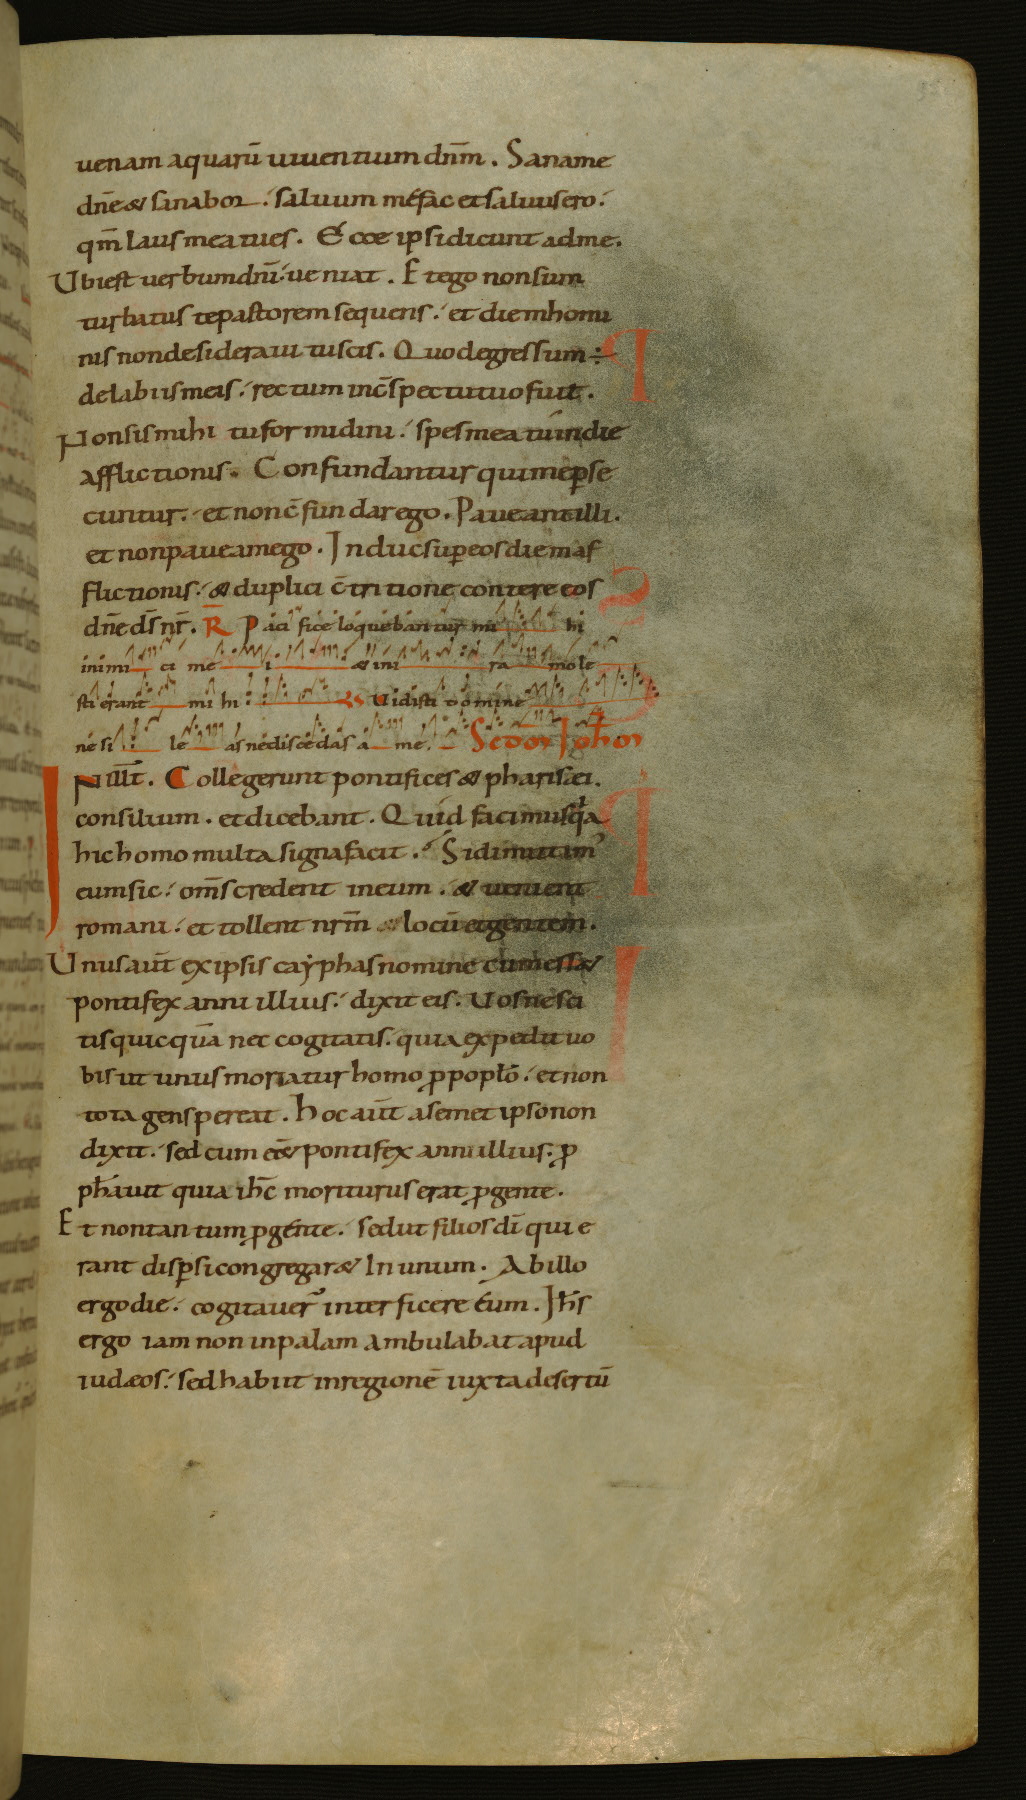 uenam aquarū uiuentium dnm̄. Saname
dnē & sanabor. saluum mé fac et saluus ero.
qm̄ laus mea tu es. Ecce ipsi dicunt ad me.
Ubi est uerbum dnī. ueniat. Et ego non sum
turbatus te pastorem sequens. et diem homi
nis non desideraui tu scis. Quod egressum ÷
de labiis meis. rectum in c̄spectu tuo fuit.
Non sis mihi tu formidini. spes mea tú in die
afflictionis. Confundantur qui me perse
cuntur. et non c̄fundar ego. Paueant illi.
et non paueam ego. Induc sup eos diem af
flictionis. & duplici c̄tritione contere eos
dnē ds̄ nr̄. R Pacifice loquebantur mi hi
inimi ci me i & in i ra mole
sti erant mi hi: Vs Uidisti domine
ne si le as ne discedas a me. Scdm Iohem
IN illt̄. Collegerunt pontifices & pharisæi.
consilium. et dicebant. Quid facimus qa
hic homo multa signa facit. Si dimittim'
eum sic. oms̄ credent in eum. & uenient
romani. et tollent nrm̄ locū et gentem.
Unus aut̄ ex ipsis cayphas nomine cum ess&
pontifex anni illius. dixit eis. Uos nesci
tis quicquā nec cogitatis. quia expedit uo
bis ut unus moriatur homo p poplō. et non
tota gens pereat. Hoc aut̄ a semet ipso non
dixit. sed cum ēe& pontifex anni illius. p
ph̄auit quia ihc̄ moriturus erat p gente.
Et non tantum p génte. sed ut filios dī qui e
rant dispsi congregar& In unum. Ab illo
ergo die. cogitauer' interficere éum. Ihs̄
ergo iam non in palam ambulabat apud
iudæos. sed habiit in regionē iuxta desertū